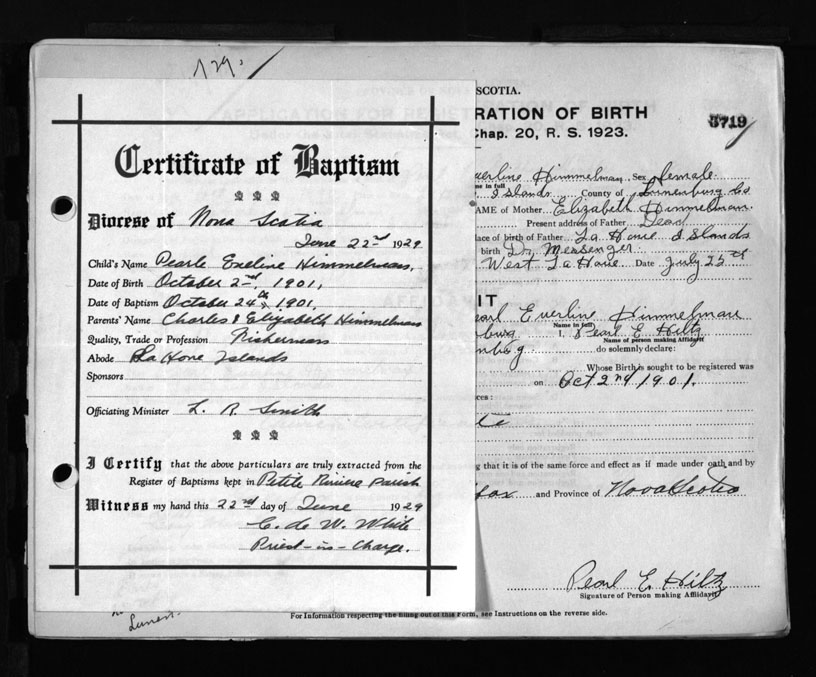 129.
Certificate of Baptism
Diocese of Nova Scotia
June 22nd 1929
Child's Name Pearle Eveline Himmelman,
Date of Birth October 2nd, 1901,
Date of Baptism October 24th, 1901,
Parents' Name Charles & Elizabeth Himmelman
Quality, Trade or Profession Fisherman
Abode La Have Islands
Sponsors
Officiating Minister L. R. Smith
I Certify that the above particulars are truly extracted from the
Register of Baptisms kept in Petite Riviere Parish
Witness my hand this 22nd day of June 1929
C. de W. White
Priest-in-Charge.
SCOTIA.
RATION OF BIRTH
Chap. 20, R. S. 1923.
3719
Everline Himmelman Sex female
me in full
Islands County of Lunenburg Co
AME of Mother Elizabeth Himmelman
Present address of Father Dead
lace of birth of Father La Have Islands
birth Dr. Messenger
West La Have Date July 25th
IT
earl Everline Himmelman
Name in full
burg I, Pearl E. Hiltz
Name of person making Affidavit
nburg do solemnly declare:
Whose Birth is sought to be registered was
on Oct 2nd 1901.
ces:
ng that it is of the same force and effect as if made under oath and by
fax and Province of Nova Scotia
Pearl E. Hiltz
Signature of Person making Affidavit
For Information respecting the filling out of this Form, see Instructions on the reverse side.
Lunen.